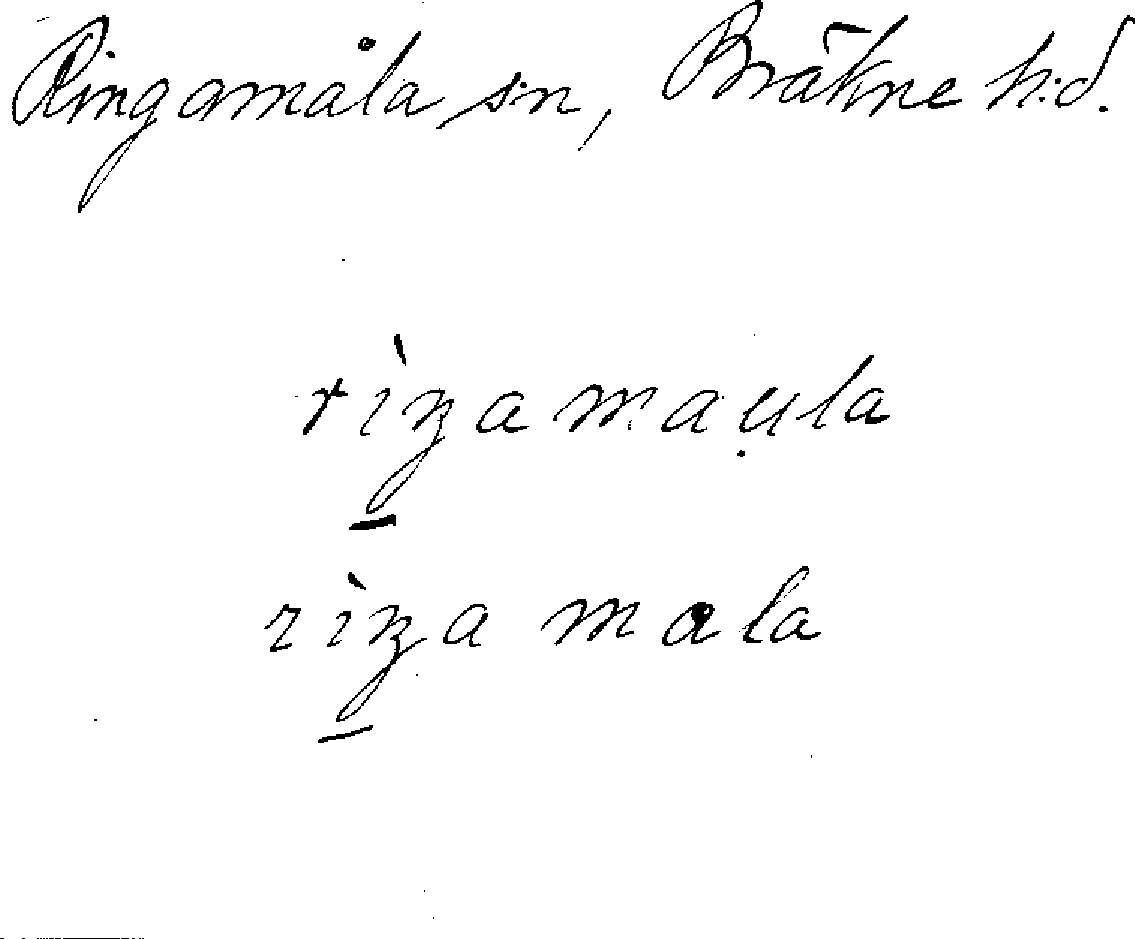 Ringamåla sn, Bräkne h:d.
rìŋamau̯la
rìŋa mala